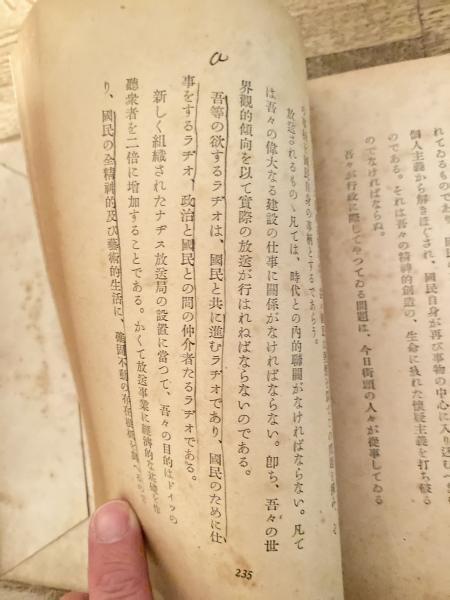 れてゐるものである。
個人主義から解きほぐされ、國民自身が再び事物の中心に入り込む
のである。それは吾々の精神的創造の、生命に狹れた懷疑主義を打ち破る
のでなければならぬ。
吾々が行政に際してやつてゐる問題は、今日街頭の人々が從事してゐる
自身の事柄とするであらう。
放送されるもの、凡ては、時代との內的聯關がなければならない。凡て
は吾々の偉大なる建設の仕事に關係がなければならない。卽ち、吾々の世
界觀的傾向を以て實際の放送が行はれねばならないのである。
吾等の欲するラヂオは、國民と共に進むラヂオであり、國民のために仕
事をするラヂオ、政治と國民との間の仲介者たるラヂオである。
新しく組織されたナチス放送局の設置に當つて、吾々の目的はドイツの
聽衆者を二倍に增加することである。かくて放送事業に經濟的な基礎を
り、國民の全精神的及び藝術的生活に、
a
235